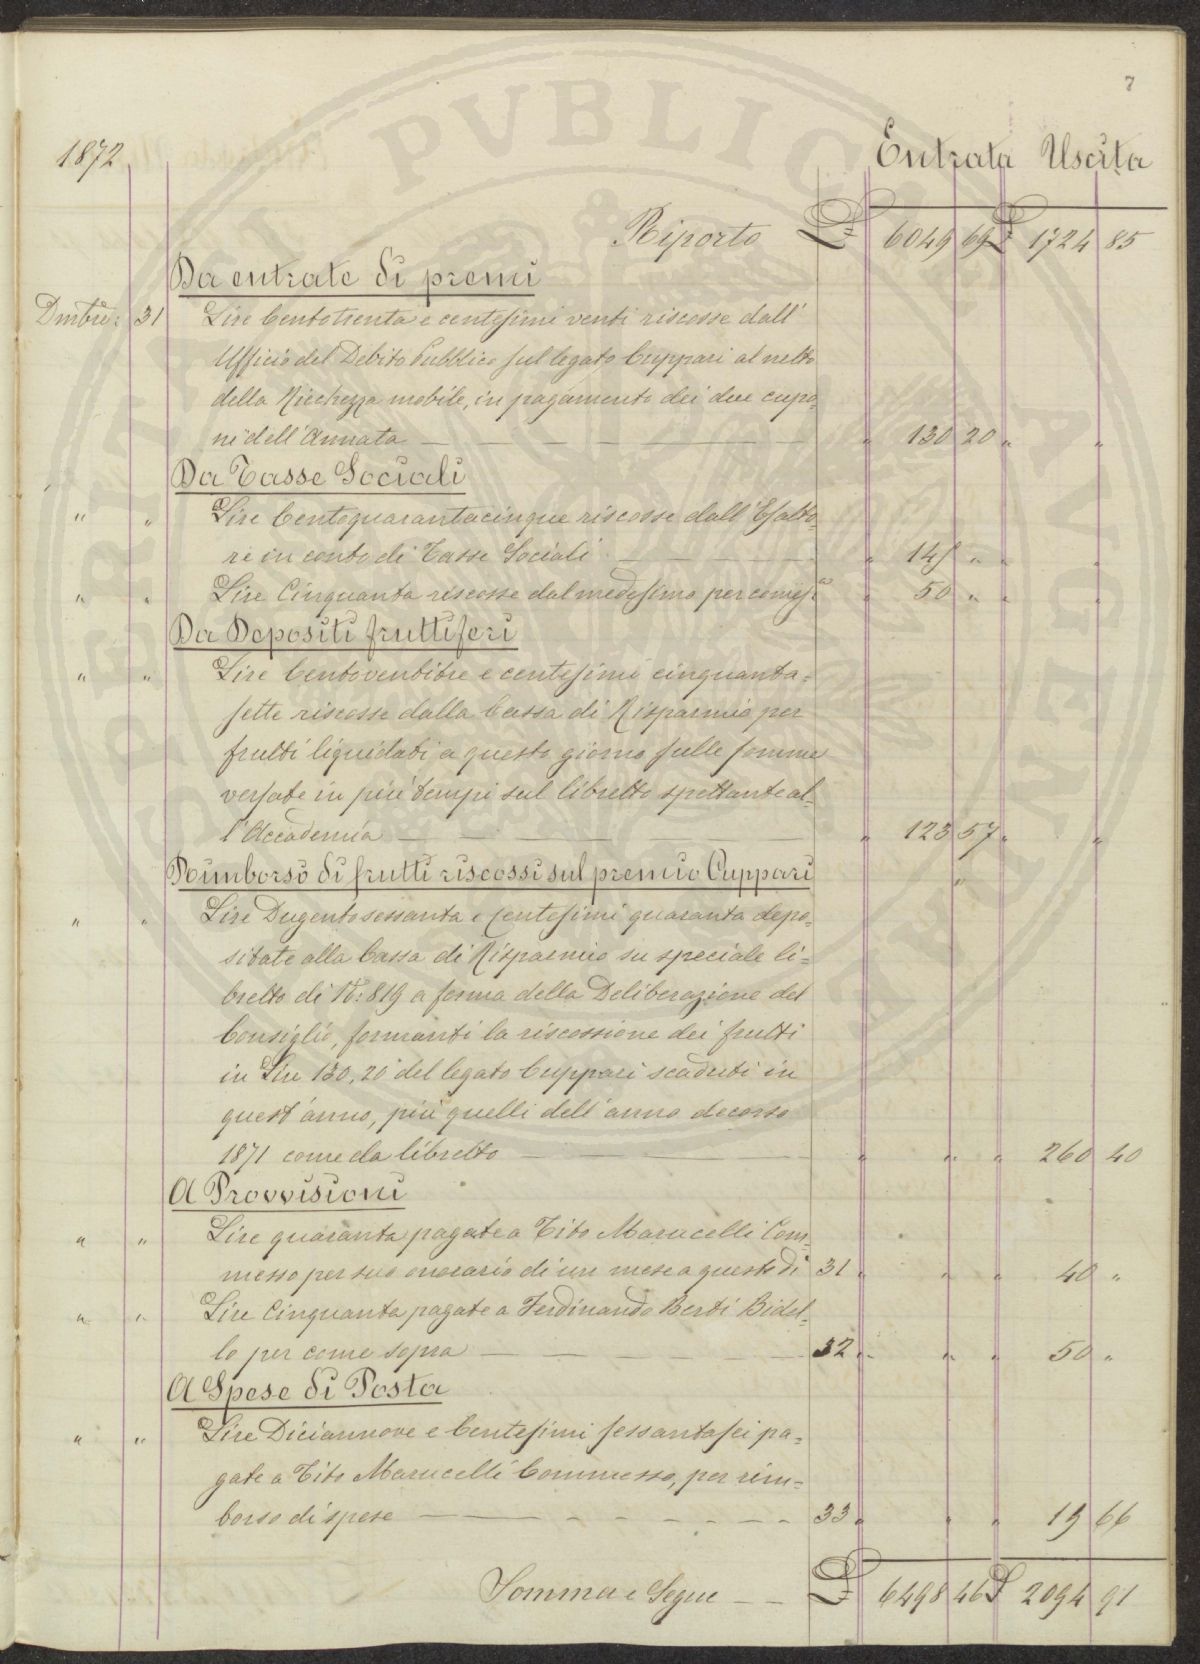 7
1872 Entrata Uscita
Riporto £ 6049 69 £ 1724 85
Da entrate di premi
Dmbre: 31 Lire Centotrenta e centesimi venti riscosse dall'
Ufficio del Debito Pubblico sul legato Cuppari al netto
della Ricchezza mobile, in pagamento dei due cupo=
ni dell'Annata — — — — — — " 130 20 " "
Da Tasse Sociali
" " Lire Centoquarantacinque riscosse dall'Esatto=
re in conto di Tasse Sociali — — — — " 145 " " "
" " Lire Cinquanta riscosse dal medesimo per come sa " 50 " " "
Da Depositi fruttiferi
" " Lire Centoventitre e centesimi cinquanta=
sette riscosse dalla Cassa di Risparmio per
frutti liquidati a questo giorno sulle somme
versate in più tempi sul libretto spettante al=
l'Accademia — — — — — " 123 57 " "
Rimborso di frutti riscossi sul premio Cuppari "
" " Lire Dugentosessanta e Centesimi quaranta depo=
sitate alla Cassa di Risparmio su speciale li=
bretto di N: 819 a forma della Deliberazione del
Consiglio, formanti la riscossione dei frutti
in Lire 130,20 del legato Cuppari scaduti in
quest'anno, più quelli dell'anno decorso
1871 come da libretto — — — — " " " 260 40
A Provvisioni
" " Lire quaranta pagate a Tito Marucelli Com=
messo per suo onorario di un mese a questo dì 31 " " " 40 "
" " Lire Cinquanta pagate a Ferdinando Berti Bidel=
lo per come sopra — — — — — 32 " " " 50 "
A Spese di Posta
" " Lire Diciannove e Centesimi sessantasei pa=
gate a Tito Marucelli Commesso, per rim=
borso di spese — — — — — — — 33 " " " 19 66
Somma e Segue — — £ 6498 46 £ 2094 91